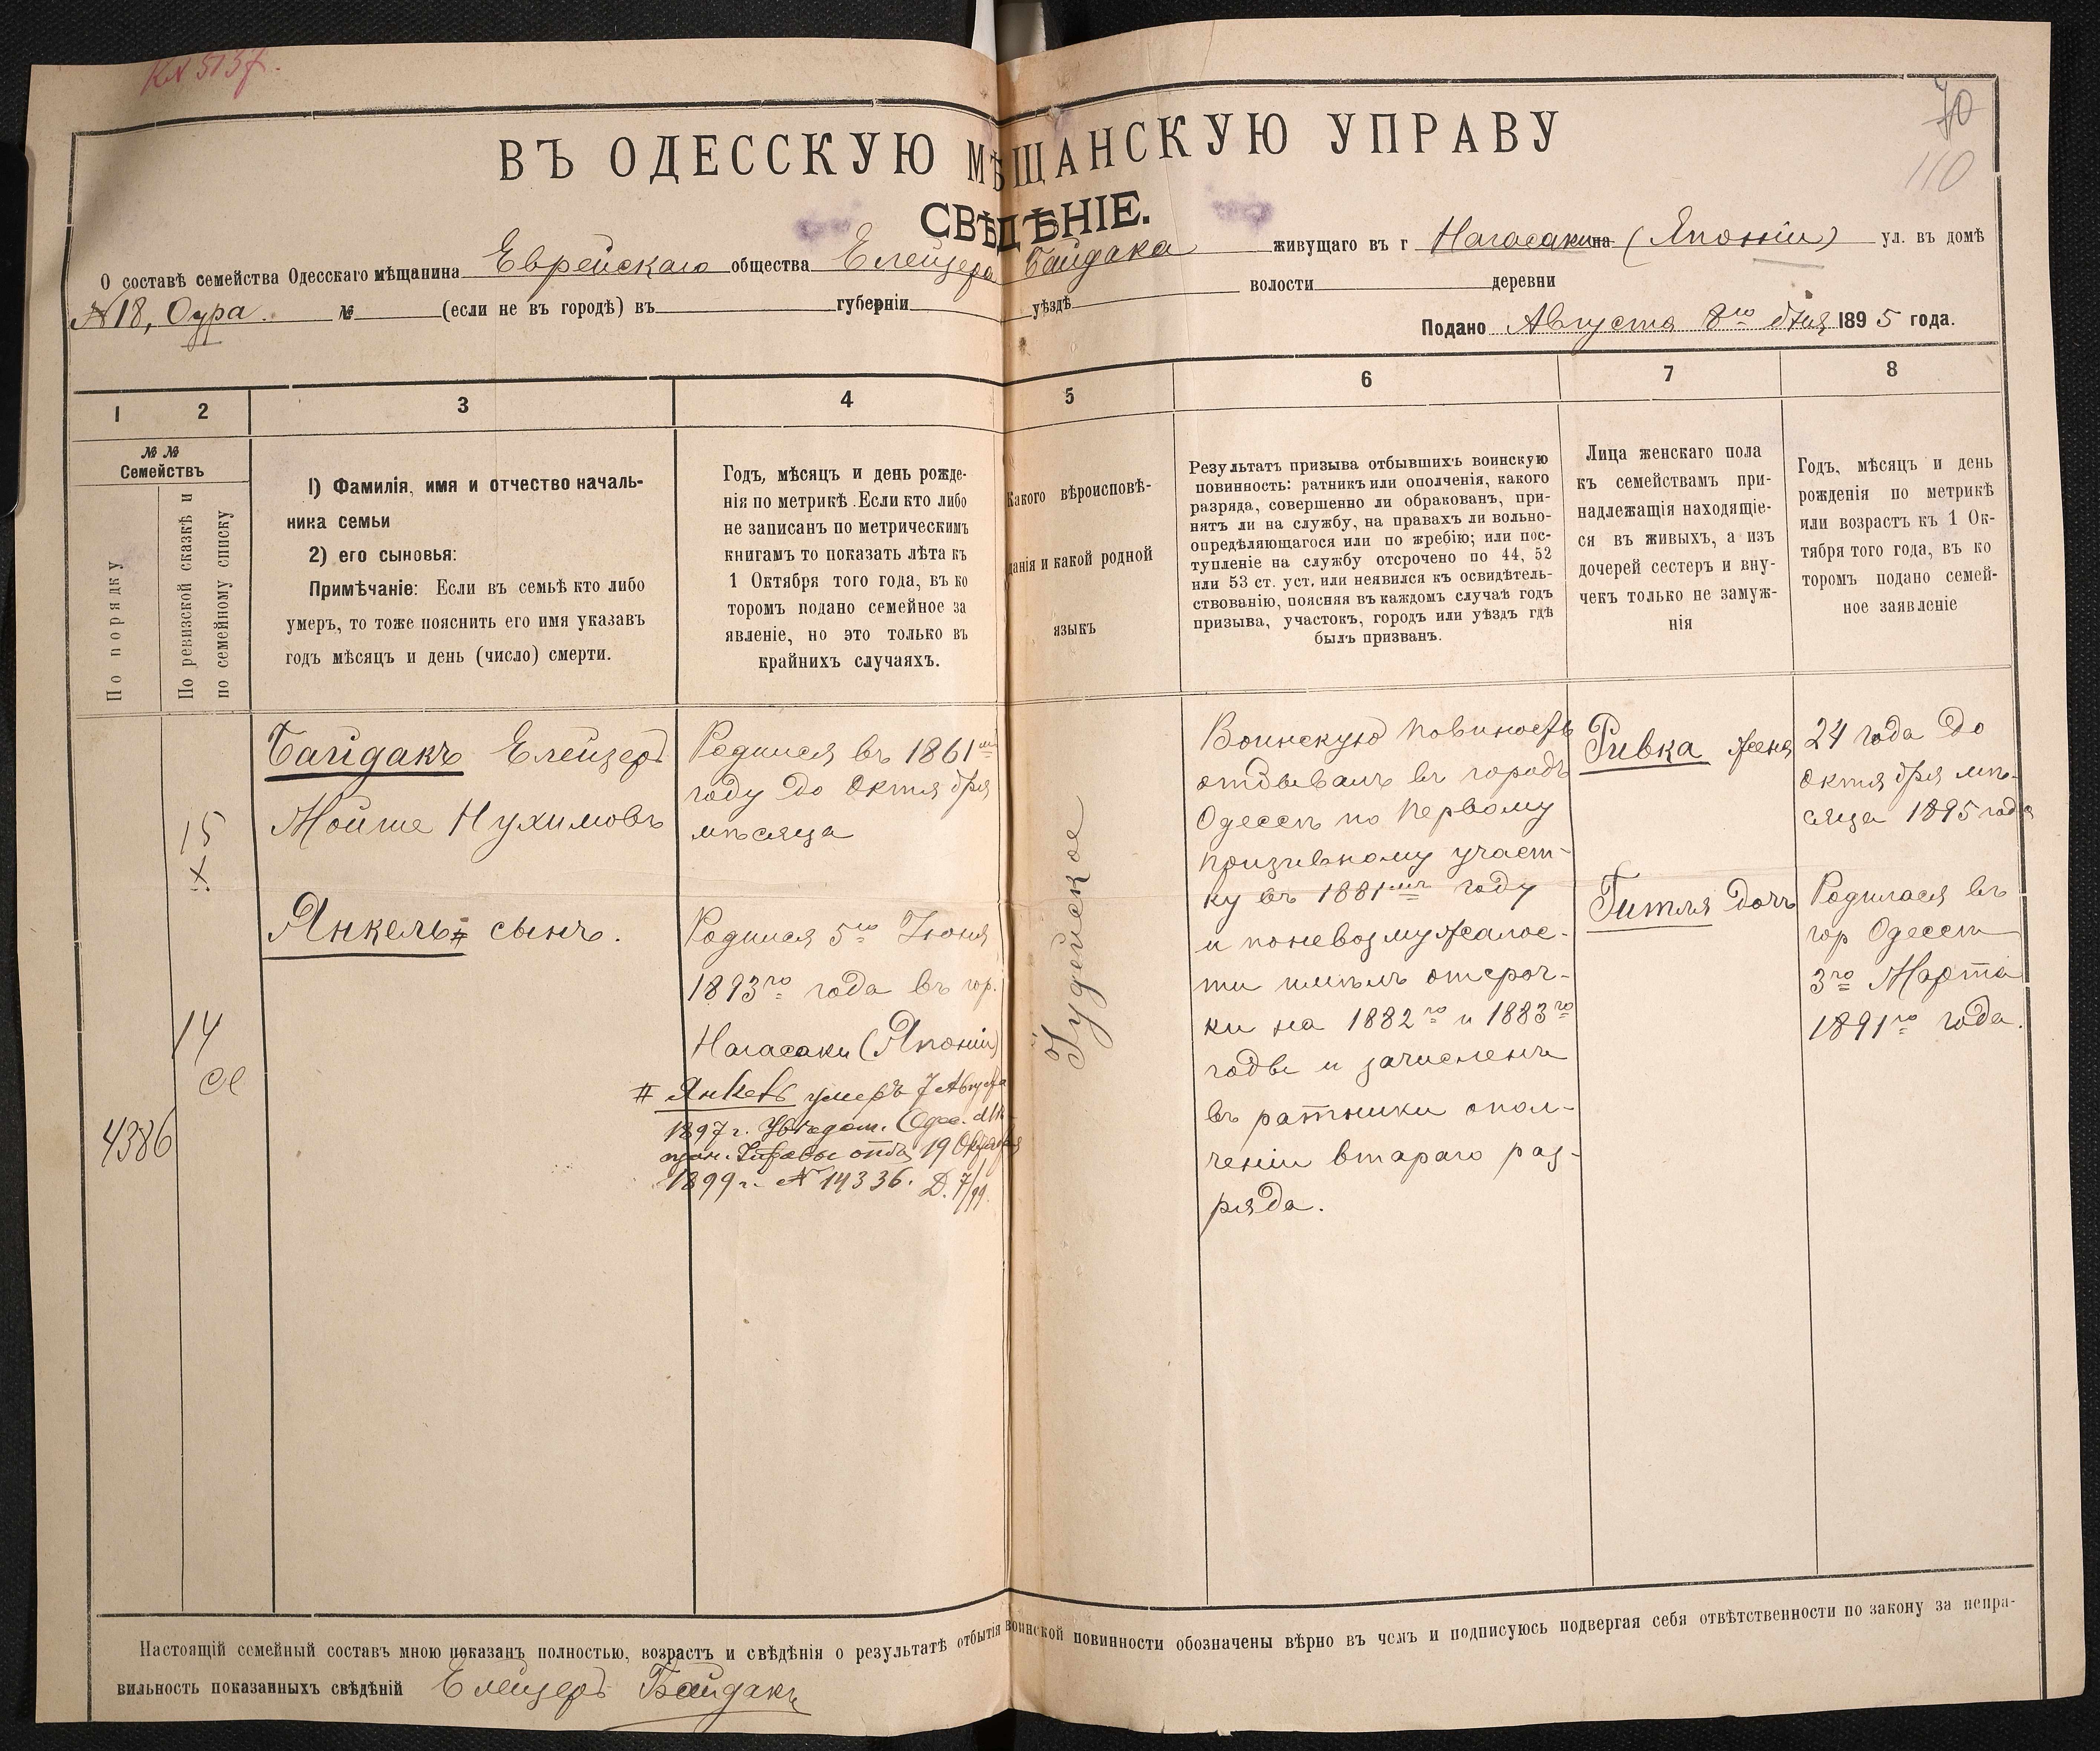 К№ 5137.
70
110
ВЪ ОДЕССКУЮ МѢЩАНСКУЮ УПРАВУ
СВѢДѢНІЕ.
О составѣ семейства Одесскаго мѣщанина Еврейскаго общества Елейзера Байдака живущаго въ г Нагасаки на (Японіи) ул. въ домѣ
№18, Оура. № (если не въ городѣ) въ губерніи уѣздѣ волости деревни
Подано Августа 8го дня 1895 года.
1 2 3 4 5 6 7 8
№ №
Семействъ
По порядку
По ревизской сказкѣ и
по семейному списку
1) Фамилія, имя и отчество началь-
ника семьи
2) его сыновья:
Примѣчаніе: Если въ семьѣ кто либо
умеръ, то тоже пояснить его имя указавъ
годъ мѣсяцъ и день (число) смерти.
Годъ, мѣсяцъ и день рожде-
нія по метрикѣ. Если кто либо
не записанъ по метрическимъ
книгамъ то показать лѣта къ
1 Октября того года, въ ко
торомъ подано семейное за
явленіе, но это только въ
крайнихъ случаяхъ.
Какого вѣроисповѣ-
данія и какой родной
языкъ
Результатъ призыва отбывшихъ воинскую
повинность: ратникъ или ополченія, какого
разряда, совершенно ли обракованъ, при-
нятъ ли на службу, на правахъ ли вольно-
опредѣляющагося или по жребію; или пос-
тупленіе на службу отсрочено по 44, 52
или 53 ст. уст. или неявился къ освидѣтель-
ствованію, поясняя въ каждомъ случаѣ годъ
призыва, участокъ, городъ или уѣздъ гдѣ
былъ призванъ.
Лица женскаго пола
къ семействамъ при-
надлежащія находящіе-
ся въ живыхъ, а изъ
дочерей сестеръ и вну-
чекъ только не замуж-
нія
Годъ, мѣсяцъ и день
рожденія по метрикѣ
или возрастъ къ 1 Ок-
тября того года, въ ко
торомъ подано семей-
ное заявленіе
4386
15
х
14
Байдакъ Елейзеръ
Мойше Нухимовъ
Янкель # сынъ.
Родился въ 1861мъ
году до Октября
мѣсяца
Родился 5го Іюня
1893го года въ гор.
Нагасаки (Японіи)
# Янкель умеръ 7 Августа
1897 г. Увѣдом. Одес. Мѣ-
щан. Управы отъ 19 Октября
1899 г. № 14336. Д. 7/99.
Іудейское
Воинскую повиность
отдывалъ въ городѣ
Одессѣ по первому
призывному участ-
ку въ 1881мъ году
и поневозмужалос-
ти имѣлъ отсроч-
ки на 1882го и 1883го
годы и зачисленъ
въ ратники опол-
ченіи втараго раз-
ряда.
Ривка жена
Гитля дочь
24 года до
октября мѣ-
сяца 1895 года
Родилася въ
гор Одессѣ
3го Марта
1891го года.
Настоящій семейный составъ мною показанъ полностью, возрастъ и свѣдѣнія о результатѣ отбытія воинской повинности обозначены вѣрно въ чемъ и подписуюсь подвергая себя отвѣтственности по закону за непра-
вильность показанныхъ свѣдѣній Елейзеръ Байдакъ